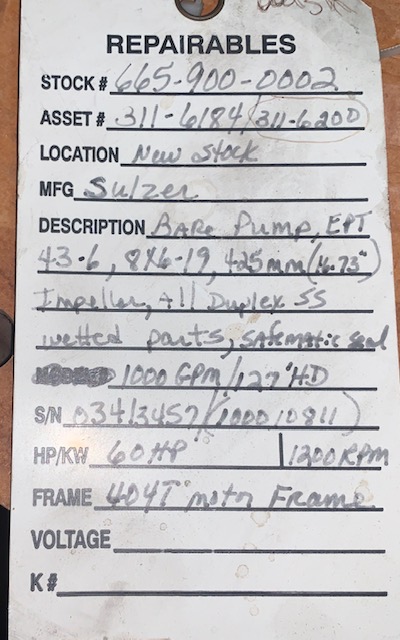 REPAIRABLES
STOCK # 665-900-0002
ASSET # 311-6184/311-6200
LOCATION New Stock
MFG Sulzer
DESCRIPTION BARe Pump, EPT
43-6, 8X6-19, 425mm (16.73")
Impeller, All Duplex SS
wetted parts, Safematic seal
1000 GPM/127'HD
S/N 03413457 (100010811)
HP/KW 60HP 1200 RPM
FRAME 404T motor Frame
VOLTAGE
K#